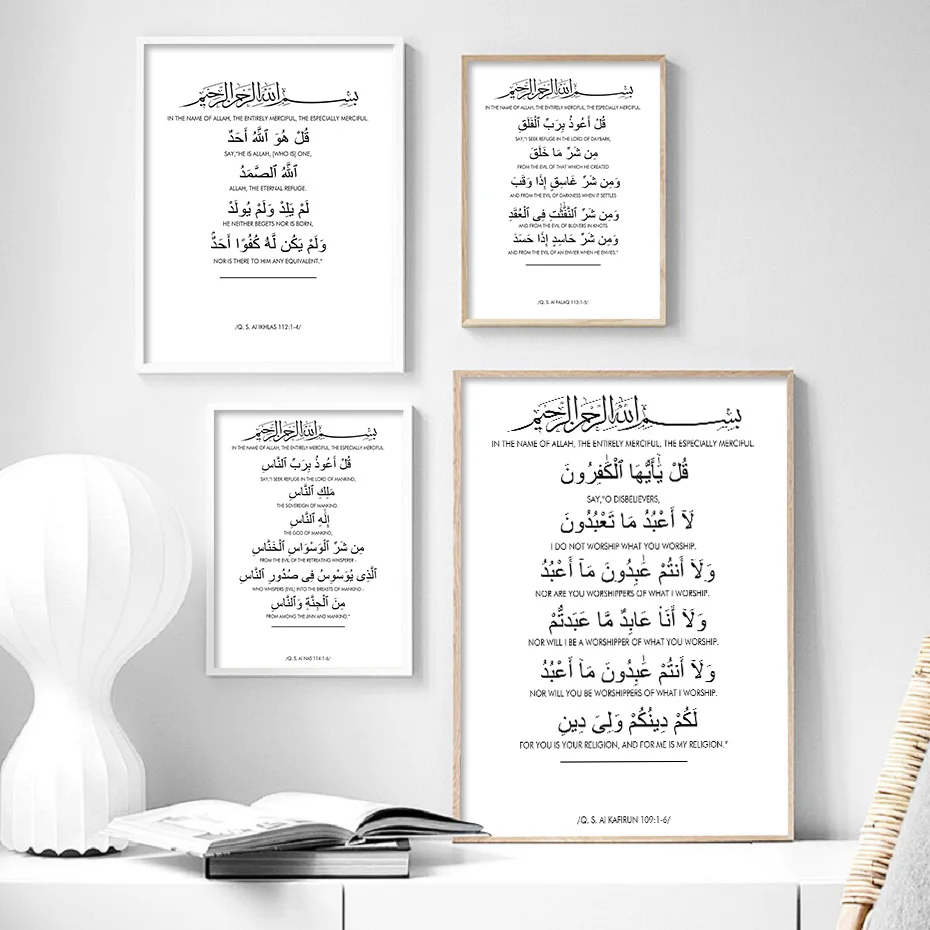 بِسْمِ اللَّهِ الرَّحْمَٰنِ الرَّحِيمِ
IN THE NAME OF ALLAH, THE ENTIRELY MERCIFUL, THE ESPECIALLY MERCIFUL.
قُلْ هُوَ ٱللَّهُ أَحَدٌ
SAY,"HE IS ALLAH, [WHO IS] ONE,
ٱللَّهُ ٱلصَّمَدُ
ALLAH, THE ETERNAL REFUGE.
لَمْ يَلِدْ وَلَمْ يُولَدْ
HE NEITHER BEGETS NOR IS BORN,
وَلَمْ يَكُن لَّهُ كُفُوًا أَحَدٌۢ
NOR IS THERE TO HIM ANY EQUIVALENT."
/Q. S. Al IKHLAS 112:1-4/
بِسْمِ اللَّهِ الرَّحْمَٰنِ الرَّحِيمِ
IN THE NAME OF ALLAH, THE ENTIRELY MERCIFUL, THE ESPECIALLY MERCIFUL.
قُلْ أَعُوذُ بِرَبِّ ٱلْفَلَقِ
SAY,"I SEEK REFUGE IN THE LORD OF DAYBARK,
مِن شَرِّ مَا خَلَقَ
FROM THE EVIL OF THAT WHICH HE CREATED
وَمِن شَرِّ غَاسِقٍ إِذَا وَقَبَ
AND FROM THE EVIL OF DARKNESS WHEN IT SETTLES
وَمِن شَرِّ ٱلنَّفَّٰثَٰتِ فِى ٱلْعُقَدِ
AND FROM THE EVIL OF BLOVERS IN KNOTS
وَمِن شَرِّ حَاسِدٍ إِذَا حَسَدَ
AND FROM THE EVIL OF AN ENVIER WHEN HE ENVIES."
/Q. S. Al FALAQ 113:1-5/
بِسْمِ اللَّهِ الرَّحْمَٰنِ الرَّحِيمِ
IN THE NAME OF ALLAH, THE ENTIRELY MERCIFUL, THE ESPECIALLY MERCIFUL.
قُلْ أَعُوذُ بِرَبِّ ٱلنَّاسِ
SAY,"I SEEK REFUGE IN THE LORD OF MANKIND,
مَلِكِ ٱلنَّاسِ
THE SOVEREIGN OF MANKIND.
إِلَٰهِ ٱلنَّاسِ
THE GOD OF MANKIND,
مِن شَرِّ ٱلْوَسْوَاسِ ٱلْخَنَّاسِ
FROM THE EVIL OF THE RETREATING WHISPERER -
ٱلَّذِى يُوَسْوِسُ فِى صُدُورِ ٱلنَّاسِ
WHO WHISPERS [EVIL] INTO THE BREASTS OF MANKIND -
مِنَ ٱلْجِنَّةِ وَٱلنَّاسِ
FROM AMONG THE JINN AND MANKIND."
/Q. S. Al NAS 114:1-6/
بِسْمِ اللَّهِ الرَّحْمَٰنِ الرَّحِيمِ
IN THE NAME OF ALLAH, THE ENTIRELY MERCIFUL, THE ESPECIALLY MERCIFUL.
قُلْ يَٰٓأَيُّهَا ٱلْكَٰفِرُونَ
SAY,"O DISBELIEVERS,
لَآ أَعْبُدُ مَا تَعْبُدُونَ
I DO NOT WORSHIP WHAT YOU WORSHIP.
وَلَآ أَنتُمْ عَٰبِدُونَ مَآ أَعْبُدُ
NOR ARE YOU WORSHIPPERS OF WHAT I WORSHIP.
وَلَآ أَنَا۠ عَابِدٌ مَّا عَبَدتُّمْ
NOR WILL I BE A WORSHIPPER OF WHAT YOU WORSHIP.
وَلَآ أَنتُمْ عَٰبِدُونَ مَآ أَعْبُدُ
NOR WILL YOU BE WORSHIPPERS OF WHAT I WORSHIP.
لَكُمْ دِينُكُمْ وَلِىَ دِينِ
FOR YOU IS YOUR RELIGION, AND FOR ME IS MY RELIGION."
/Q. S. Al KAFIRUN 109:1-6/